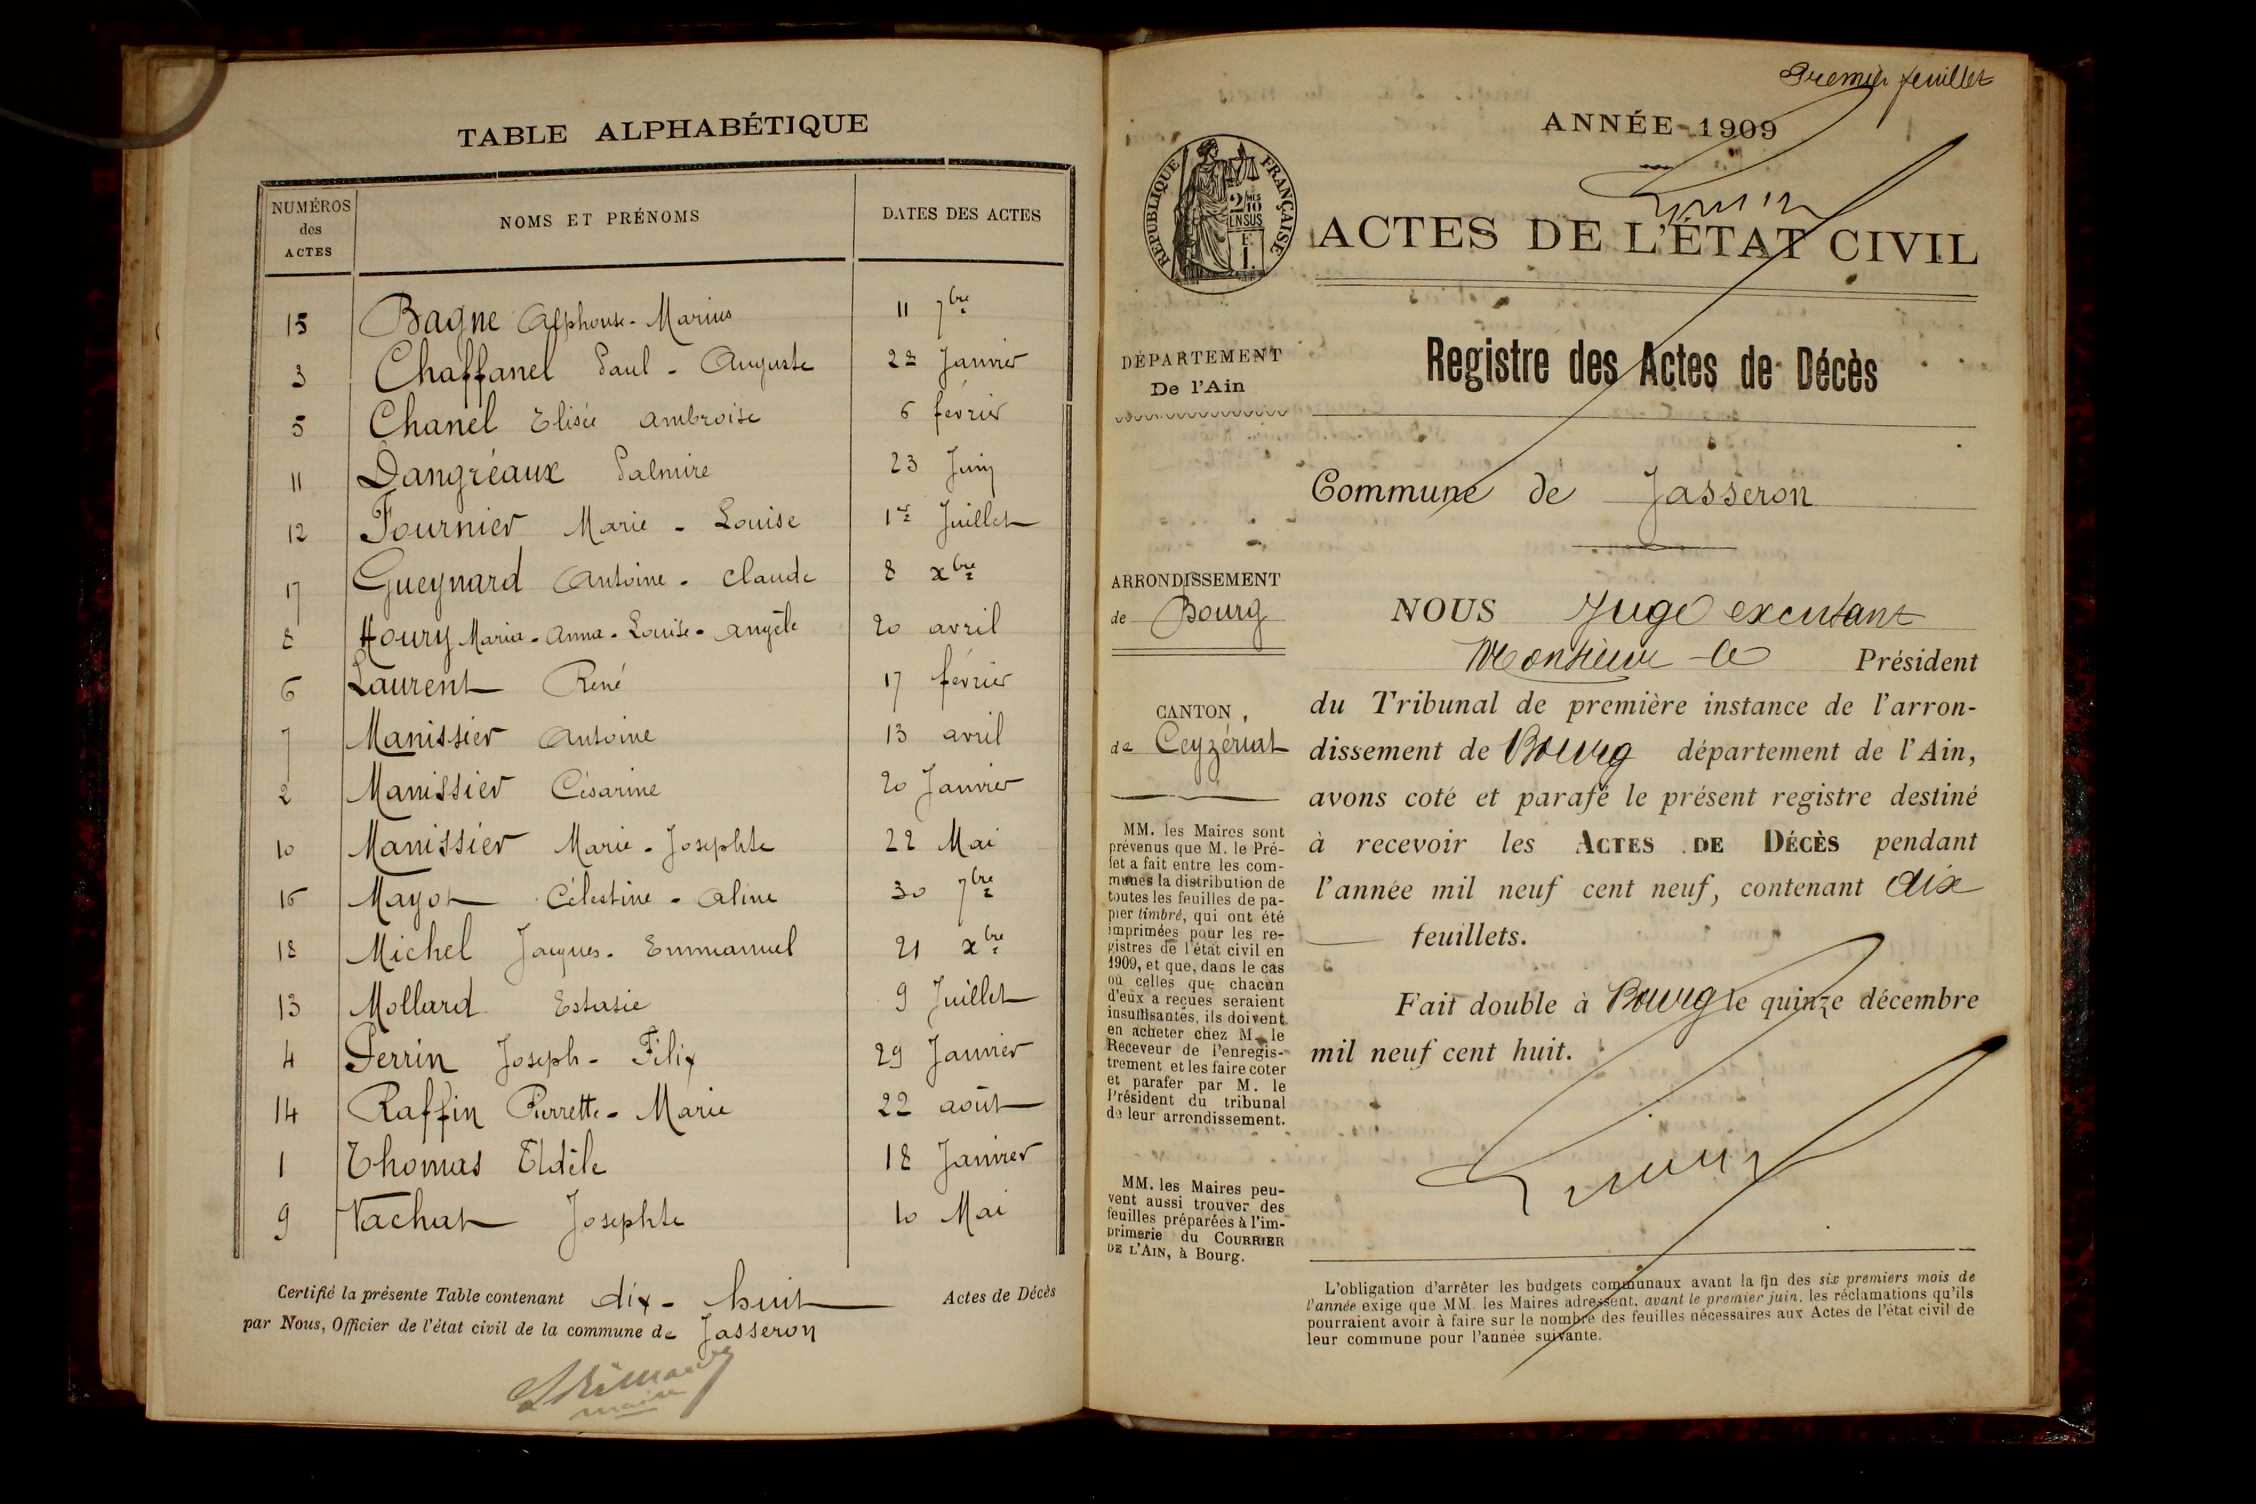 TABLE ALPHABÉTIQUE
NUMÉROS des ACTES
NOMS ET PRÉNOMS
DATES DES ACTES
15 Bagne Alphonse-Marius 11 7bre
3 Chaffanel Paul-Auguste 22 Janvier
5 Chanel Elisée Ambroise 6 février
11 Dangréaux Palmire 23 Juin
12 Fournier Marie-Louise 1er Juillet
17 Gueynard Antoine-Claude 8 xbre
8 Houry Maria-Anna-Louise-Angèle 20 avril
6 Laurent René 17 février
7 Manissier Antoine 13 avril
2 Manissier Césarine 20 Janvier
10 Manissier Marie-Josephte 22 Mai
16 Mayot Célestine-Aline 30 7bre
18 Michel Jacques-Emmanuel 21 xbre
13 Mollard Estasie 9 Juillet
4 Perrin Joseph-Félix 29 Janvier
14 Raffin Pierrette-Marie 22 août
1 Thomas Eldèle 18 Janvier
9 Vachat Josephte 10 Mai
Certifié la présente Table contenant dix-huit Actes de Décès
par Nous, Officier de l'état civil de la commune de Jasseron
maire
Premier feuillet
ANNÉE 1909
RÉPUBLIQUE FRANÇAISE
2/MES 10
EN SUS
F.
1.
ACTES DE L'ÉTAT CIVIL
DÉPARTEMENT
De l'Ain
Registre des Actes de Décès
Commune de Jasseron
ARRONDISSEMENT
de Bourg
CANTON
de Ceyzériat
MM. les Maires sont
prévenus que M. le Pré-
fet a fait entre les com-
munes la distribution de
toutes les feuilles de pa-
pier timbré, qui ont été
imprimées pour les re-
gistres de l'état civil en
1909, et que, dans le cas
où celles que chacun
d'eux a reçues seraient
insuffisantes, ils doivent
en acheter chez M. le
Receveur de l'enregis-
trement et les faire coter
et parafer par M. le
Président du tribunal
de leur arrondissement.
MM. les Maires peu-
vent aussi trouver des
feuilles préparées à l'im-
primerie du COURRIER
DE L'AIN, à Bourg.
NOUS Juge excusant
Monsieur le Président
du Tribunal de première instance de l'arron-
dissement de Bourg département de l'Ain,
avons coté et parafé le présent registre destiné
à recevoir les ACTES DE DÉCÈS pendant
l'année mil neuf cent neuf, contenant dix
feuillets.
Fait double à Bourg le quinze décembre
mil neuf cent huit.
L'obligation d'arrêter les budgets communaux avant la fin des six premiers mois de
l'année exige que MM. les Maires adressent, avant le premier juin, les réclamations qu'ils
pourraient avoir à faire sur le nombre des feuilles nécessaires aux Actes de l'état civil de
leur commune pour l'année suivante.